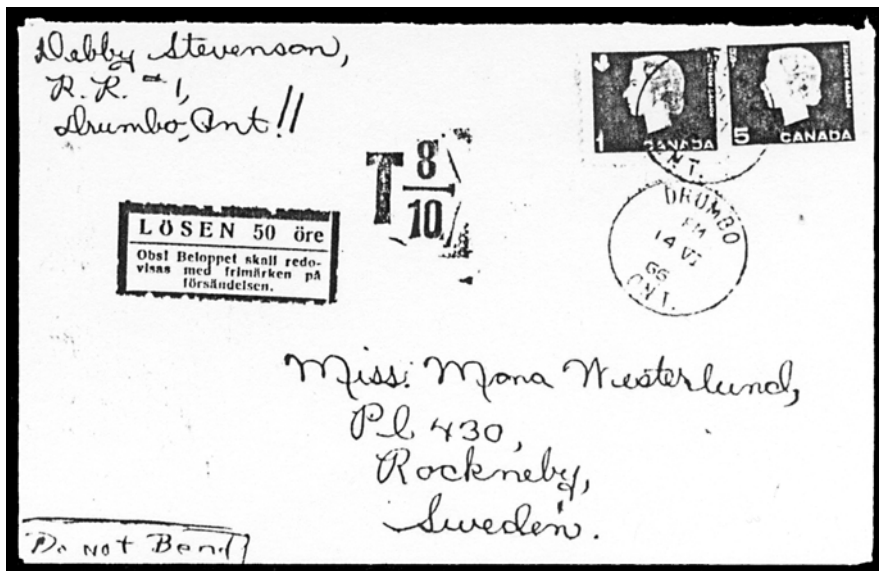 Debby Stevenson,
R. R. #1,
Drumbo, Ont!!
1 CANADA
5 CANADA
T 8/10
ONT.
DRUMBO
PM
14 VI
66
ONT.
LÖSEN 50 öre
Obs! Beloppet skall redo-
visas med frimärken på
försändelsen.
Miss. Mona Westerlund,
Pl 430,
Rockneby,
Sweden.
Do Not Bend